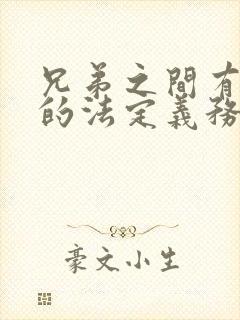 兄弟之間有
的法定義務
豪文小生